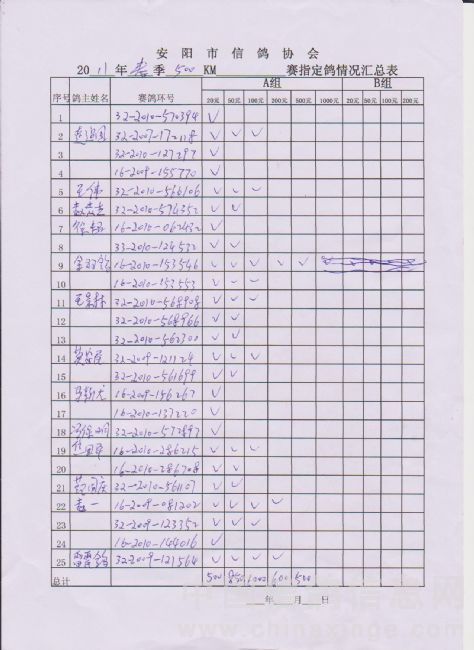 安阳市信鸽协会
2011年春季500KM 赛指定鸽情况汇总表
序号 鸽主姓名 赛鸽环号 A组 B组
20元 50元 100元 200元 500元 1000元 20元 50元 100元 200元
1 32-2010-570394 ✓
2 32-2007-172118 ✓ ✓ ✓
3 32-2010-127297 ✓
4 16-2009-155770 ✓
5 王伟 32-2010-566106 ✓ ✓ ✓
6 32-2010-574352 ✓ ✓
7 16-2010-062432 ✓
8 33-2010-124532 ✓ ✓
9 16-2010-153546 ✓ ✓ ✓ ✓ ✓
10 16-2010-153553 ✓ ✓ ✓
11 32-2010-568908 ✓ ✓ ✓
12 32-2010-568966 ✓ ✓
13 32-2010-562300 ✓ ✓
14 32-2009-121124 ✓ ✓ ✓
15 32-2010-561699 ✓ ✓
16 16-2009-156267 ✓
17 16-2010-137220 ✓
18 32-2010-572897 ✓
19 16-2010-286215 ✓ ✓ ✓
20 16-2010-286708 ✓ ✓
21 32-2010-561107 ✓ ✓
22 16-2009-081202 ✓ ✓ ✓ ✓
23 32-2009-123352 ✓ ✓ ✓
24 16-2010-144016 ✓
25 32-2009-121564 ✓ ✓ ✓ ✓
总计 500 850 1000 600 500
年 月 日
www.chinaxinge.com